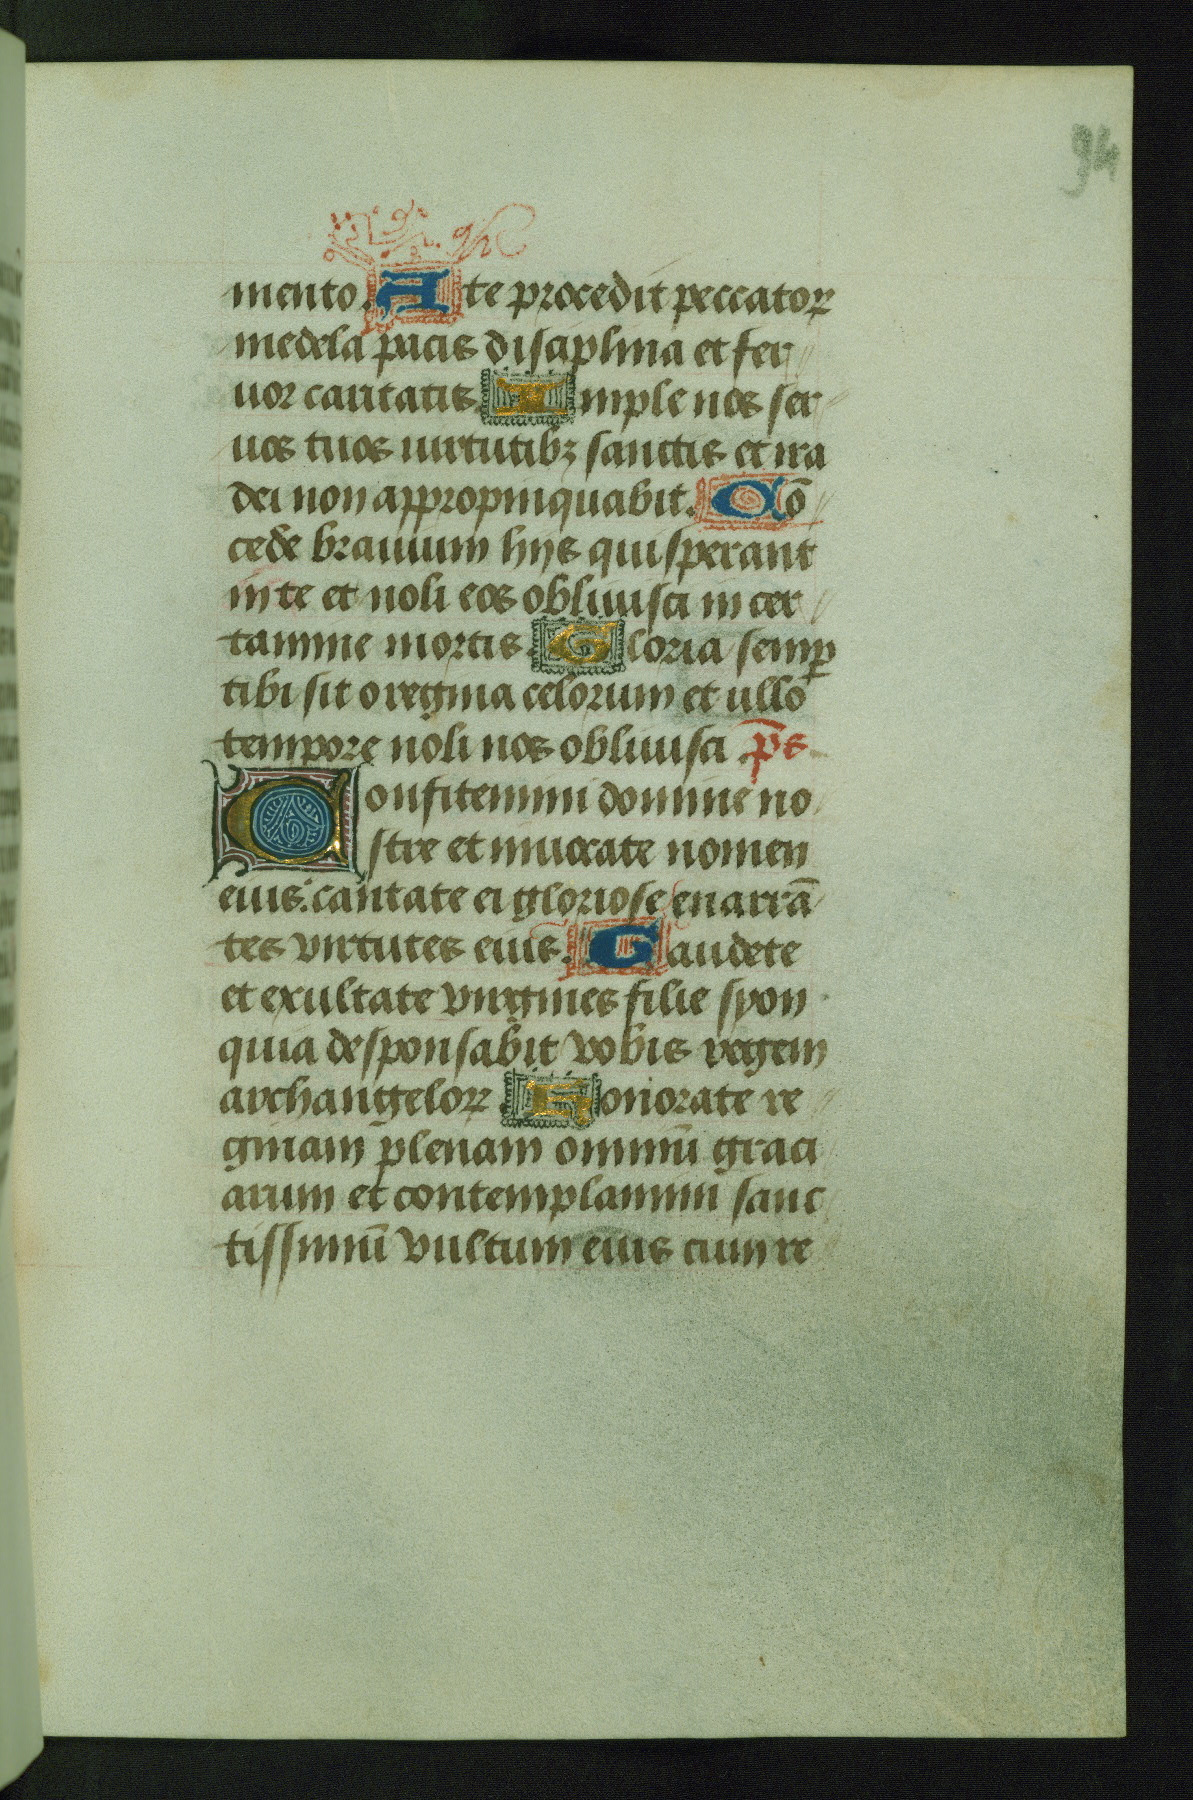 94
mento. A te procedit peccatoꝝ
medela pacis disciplina et fer
uor caritatis. Imple nos ser
uos tuos uirtutibꝫ sanctis et ira
dei non appropinquabit. Cō
cede brauium hijs qui sperant
in te et noli eos obliuisci in cer
tamine mortis. Gloria semꝑ
tibi sit o regina celorum et ullo
tempore noli nos obliuisci. p̄s
Confitemini domine no
stre et inuocate nomen
eius: cantate ei gloriose enarrā
tes virtutes eius. Gaudete
et exultate virgines filie syon
quia desponsabit vobis regem
archangeloꝝ. Honorate re
ginam plenam omniū graci
arum et contemplamini sanc
tissimū vultum eius cum re